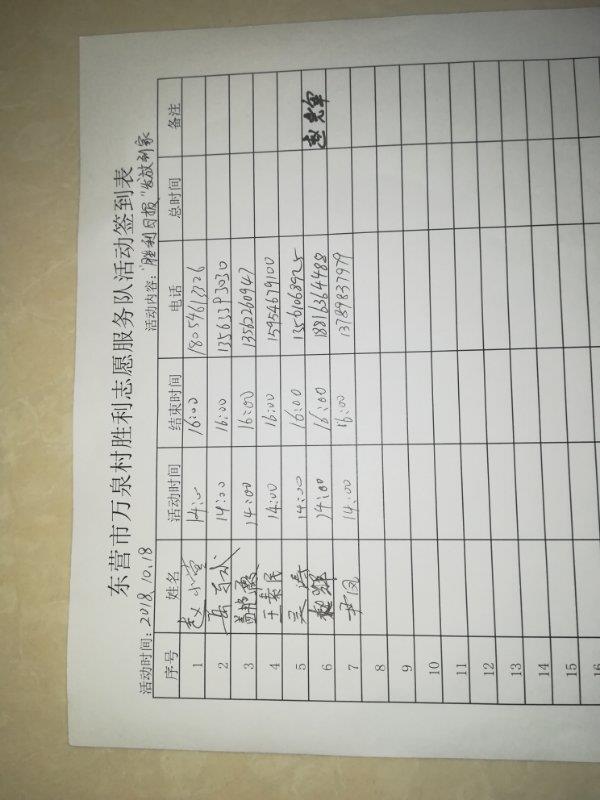 东营市万泉村胜利志愿服务队活动签到表
活动时间：2018.10.18 活动内容："胜利日报"发放到家
序号 姓名 活动时间 结束时间 电话 总时间 备注
1 赵小雪 14:0 16:00 18054613326
2 14:00 16:00 13563393030
3 14:00 16:00 13562260947
4 王秦民 14:00 16:00 15954679100
5 吴涛 14:00 16:00 13561068925
6 赵辉 14:00 16:00 18816364488
7 尹凤 14:00 16:00 13789837979
8
9
10
11
12
13
14
15
16